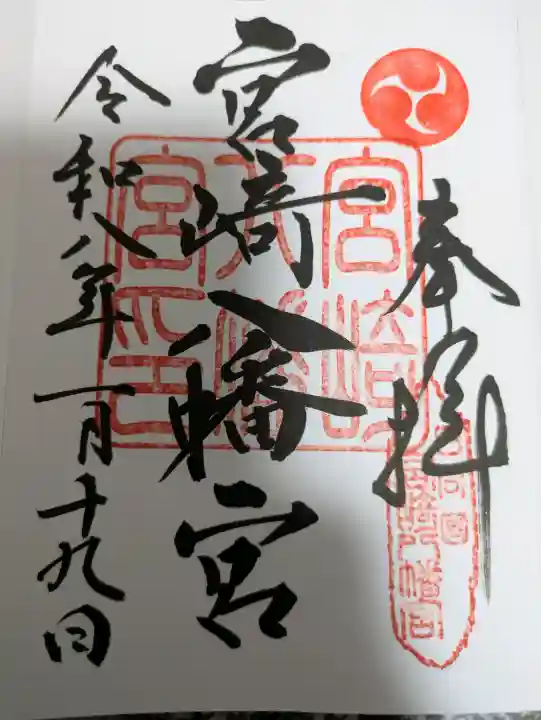 奉拝
宮崎八幡宮
宮崎八幡宮印
日向国
宮崎八幡宮
令和八年一月十九日